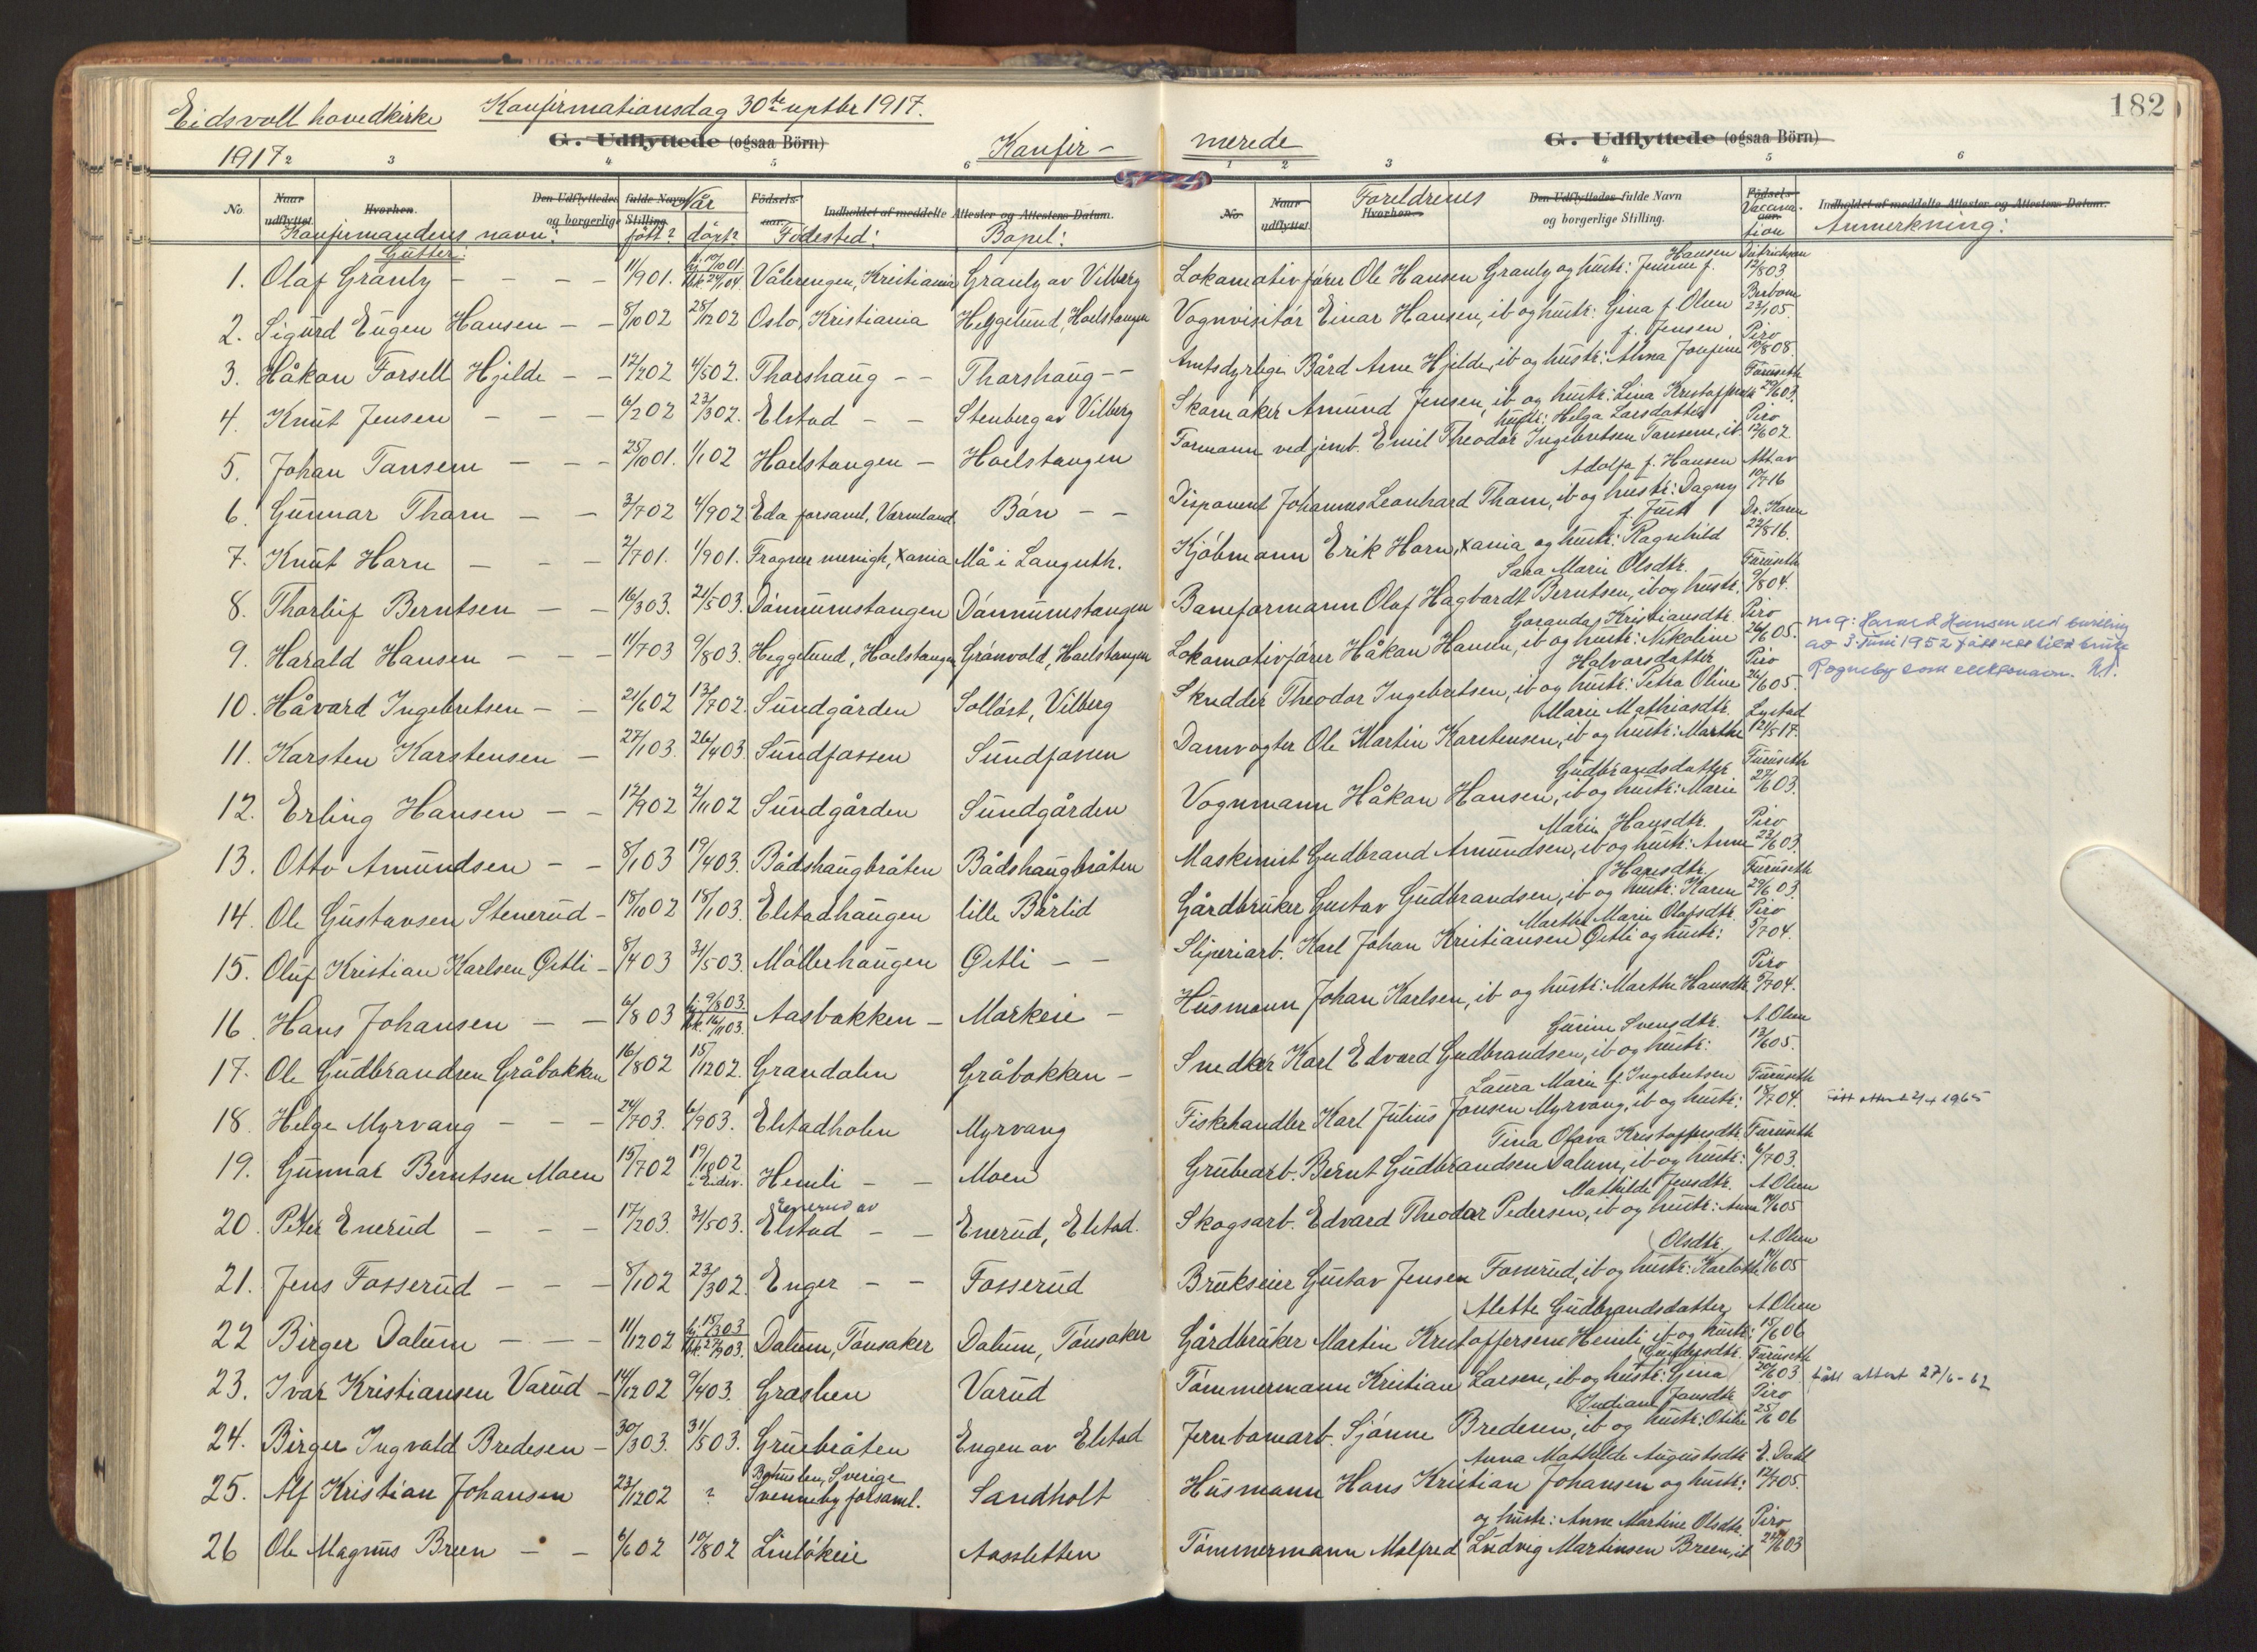 182
Eidsvoll hovedkirke Konfirmationsdag 30te septbr 1917.
G. Udflyttede (ogsaa Börn) G. Udflyttede (ogsaa Börn)
1917 Konfir- merede
2 3 4 5 6 1 2 3 4 5 6
No. Naar udflyttet. Hvorhen. Den Udflyttedes fulde Navn og borgerlige Stilling. Födsels-aar. Indholdet af meddelte Attester og Attestens Datum.
Konfirmandens navn: Når född? döpt? Födested: Bopel:
No. Naar udflyttet. Hvorhen. Den Udflyttedes fulde Navn og borgerlige Stilling. Födsels-aar. Indholdet af meddelte Attester og Attestens Datum.
Foreldrenes Vaccination Anmerkning:
Gutter:
1. Olaf Granly - - - 11/901. hj. 10/1001. bk. 24/104. Vålerengen, Kristiania Granly av Vilberg Lokomotivfører Ole Hansen Granly og hustr: Jenine f. Hansen 12/803
2. Sigurd Eugen Hansen - - 8/1002 28/1202 Oslo, Kristiania Heggelund, Hoelstangen Vognvisitör Einar Hansen, ib og hustr: Gina f. Olsen 23/105.
3. Håkon Forsell Hjelde - - 12/202 4/502. Thorshaug - - Thorshaug - - Amtsdyrlege Bård Arne Hjelde, ib og hustr: Alma Josefine f. Jensen Piro 10/808.
4. Knut Jensen - - - 6/202 23/302. Elstad - - Stenberg av Vilberg Skomaker Amund Jensen, ib og hustr: Lina Kristoffersdtr Furuseth 29/603.
5. Johan Tansem - - - 25/1001. 1/102 Hoelstangen - Hoelstangen Formann ved jernb. Emil Theodor Ingebretsen Tansem, ib hustr: Helga Larsdatter Piro 12/602.
6. Gunnar Thorn - - 3/702 4/902 Eda forsaml, Vermland Bön - - Disponent Johannes Leonhard Thorn, ib og hustr: Dagny Adolfa f. Hansen Att av 10/716
7. Knut Horn - - - 2/701. 1/901. Frogner menigh, Xania Må i Languth. Kjöbmann Erik Horn, Xania og hustr: Ragnhild f. Juel Dr. Koren 22/816.
8. Thorleif Berntsen - - 16/303. 21/503. Dönnumstangen Dönnumstangen Baneformann Olaf Hagbardt Berntsen, ib og hustr. Sara Marie Olsdtr. Furuseth 9/804.
9. Harald Hansen - - - 11/703 9/803. Heggelund, Hoelstangen Grönvold, Hoelstangen Lokomotivförer Håkon Hansen, ib og hustr: Nikoline Kristiansdtr. Piro 26/605.
nr 9: Harald Hansen ved bevilling av 3 Juni 1952 fått rett til å bruke Rogneby som slektsnavn.
10. Håvard Ingebretsen - - 21/602 13/702. Sundgården Solløst, Vilberg Skredder Theodor Ingebretsen, ib og hustr: Petra Oline Halvorsdatter Piro 26/605.
11. Karsten Karstensen - 27/103. 26/403. Sundfossen Sundfossen Damvogter Ole Martin Karstensen, ib og hustr: Marthe Marie Mathiasdtr. Lystad 12/517.
12. Erling Hansen - - 12/902 2/1102 Sundgården Sundgården Vognmann Håkon Hansen, ib og hustr: Marie Gudbrandsdatter Furuseth 27/603.
13. Otto Amundsen - - 8/103 19/403. Bådshaugbråten Bådshaugbråten Maskinist Gudbrand Amundsen, ib og hustr: Anne Marie Hansdtr. Piro 23/603.
14. Ole Gustavsen Stenerud - 18/1002 18/103. Elstadhaugen lille Bårlid Gårdbruker Gustav Gudbrandsen, ib og hustr: Karen Hansdtr. Furuseth 29/603.
15. Oluf Kristian Karlsen Østli - 8/403 31/503. Möllerhaugen Østli - - Sliperiarb. Karl Johan Kristiansen Østli og hustr: Marthe Marie Olafsdtr. Piro 5/704.
16 Hans Johansen - - 6/803 hj. 9/803. bk. 16/1103. Aasbakken - Morkeie - Husmann Johan Karlsen, ib og hustr: Marthe Hansdtr Piro 5/704.
17. Ole Gudbrandsen Gråbakken 16/802 15/1202. Grandalen Gråbakken - Snedker Karl Edvard Gudbrandsen, ib og hustr: Gurine Svensdtr. A. Olsen 13/605.
18. Helge Myrvang - - - 24/703. 6/903. Elstadholen Myrvang Fiskehandler Karl Julius Jonsen Myrvang, ib og hustr: Laura Marie f. Ingebretsen Furuseth 18/704. fått attest 1965
19. Gunnar Berntsen Moen 15/702 19/1002 i Eidsv. Hemli - - Moen Grubearb. Bernt Gudbrandsen Dalum, ib og hustr: Tina Olava Kristoffersdtr. Furuseth 6/703.
20. Peter Enerud - - - 17/203. 31/503. Enerud av Elstad - - Enerud, Elstad. Skogsarb. Edvard Theodor Pedersen, ib og hustr: Anne Mathilde Jensdtr. A. Olsen 14/605
21. Jens Fosserud - - - 8/102 23/302. Enger - - Fosserud Brukseier Gustav Jensen Fosserud, ib og hustr: Karlotte Olsdtr. A. Olsen 14/605
22 Birger Dalum - - - 11/1202 hj. 15/303 bk. 27/903. Dalum, Tönsaker Dalum, Tönsaker Gårdbruker Martin Kristoffersen Hemli, ib og hustr: Alette Gudbrandsdatter A. Olsen 15/606
23. Ivar Kristiansen Varud - 14/1202 9/403. Graslien Varud Tömmermann Kristian Larsen, ib og hustr: Gina Gundersdtr. Furuseth 20/603 fått attest 27/6-62
24. Birger Ingvald Bredesen - 30/303. 31/503. Gruebråten Engen av Elstad Jernbanearb. Sjönne Bredesen, ib og hustr: Otilie Indiane Jonsdtr Piro 25/606
25. Alf Kristian Johansen 23/1202 ? Bohuslen, Sverige Svenneby forsaml. Sandholt Husmann Hans Kristian Johansen og hustr: Anna Mathilde Augustsdtr E. Dahl 12/705.
26 Ole Magnus Breen - - 6/602 10/802 Linlökeie Aassletten Tömmermann Malfred Ludvig Martinsen Breen, ib og hustr: Anne Martine Olsdtr. Piro 24/603